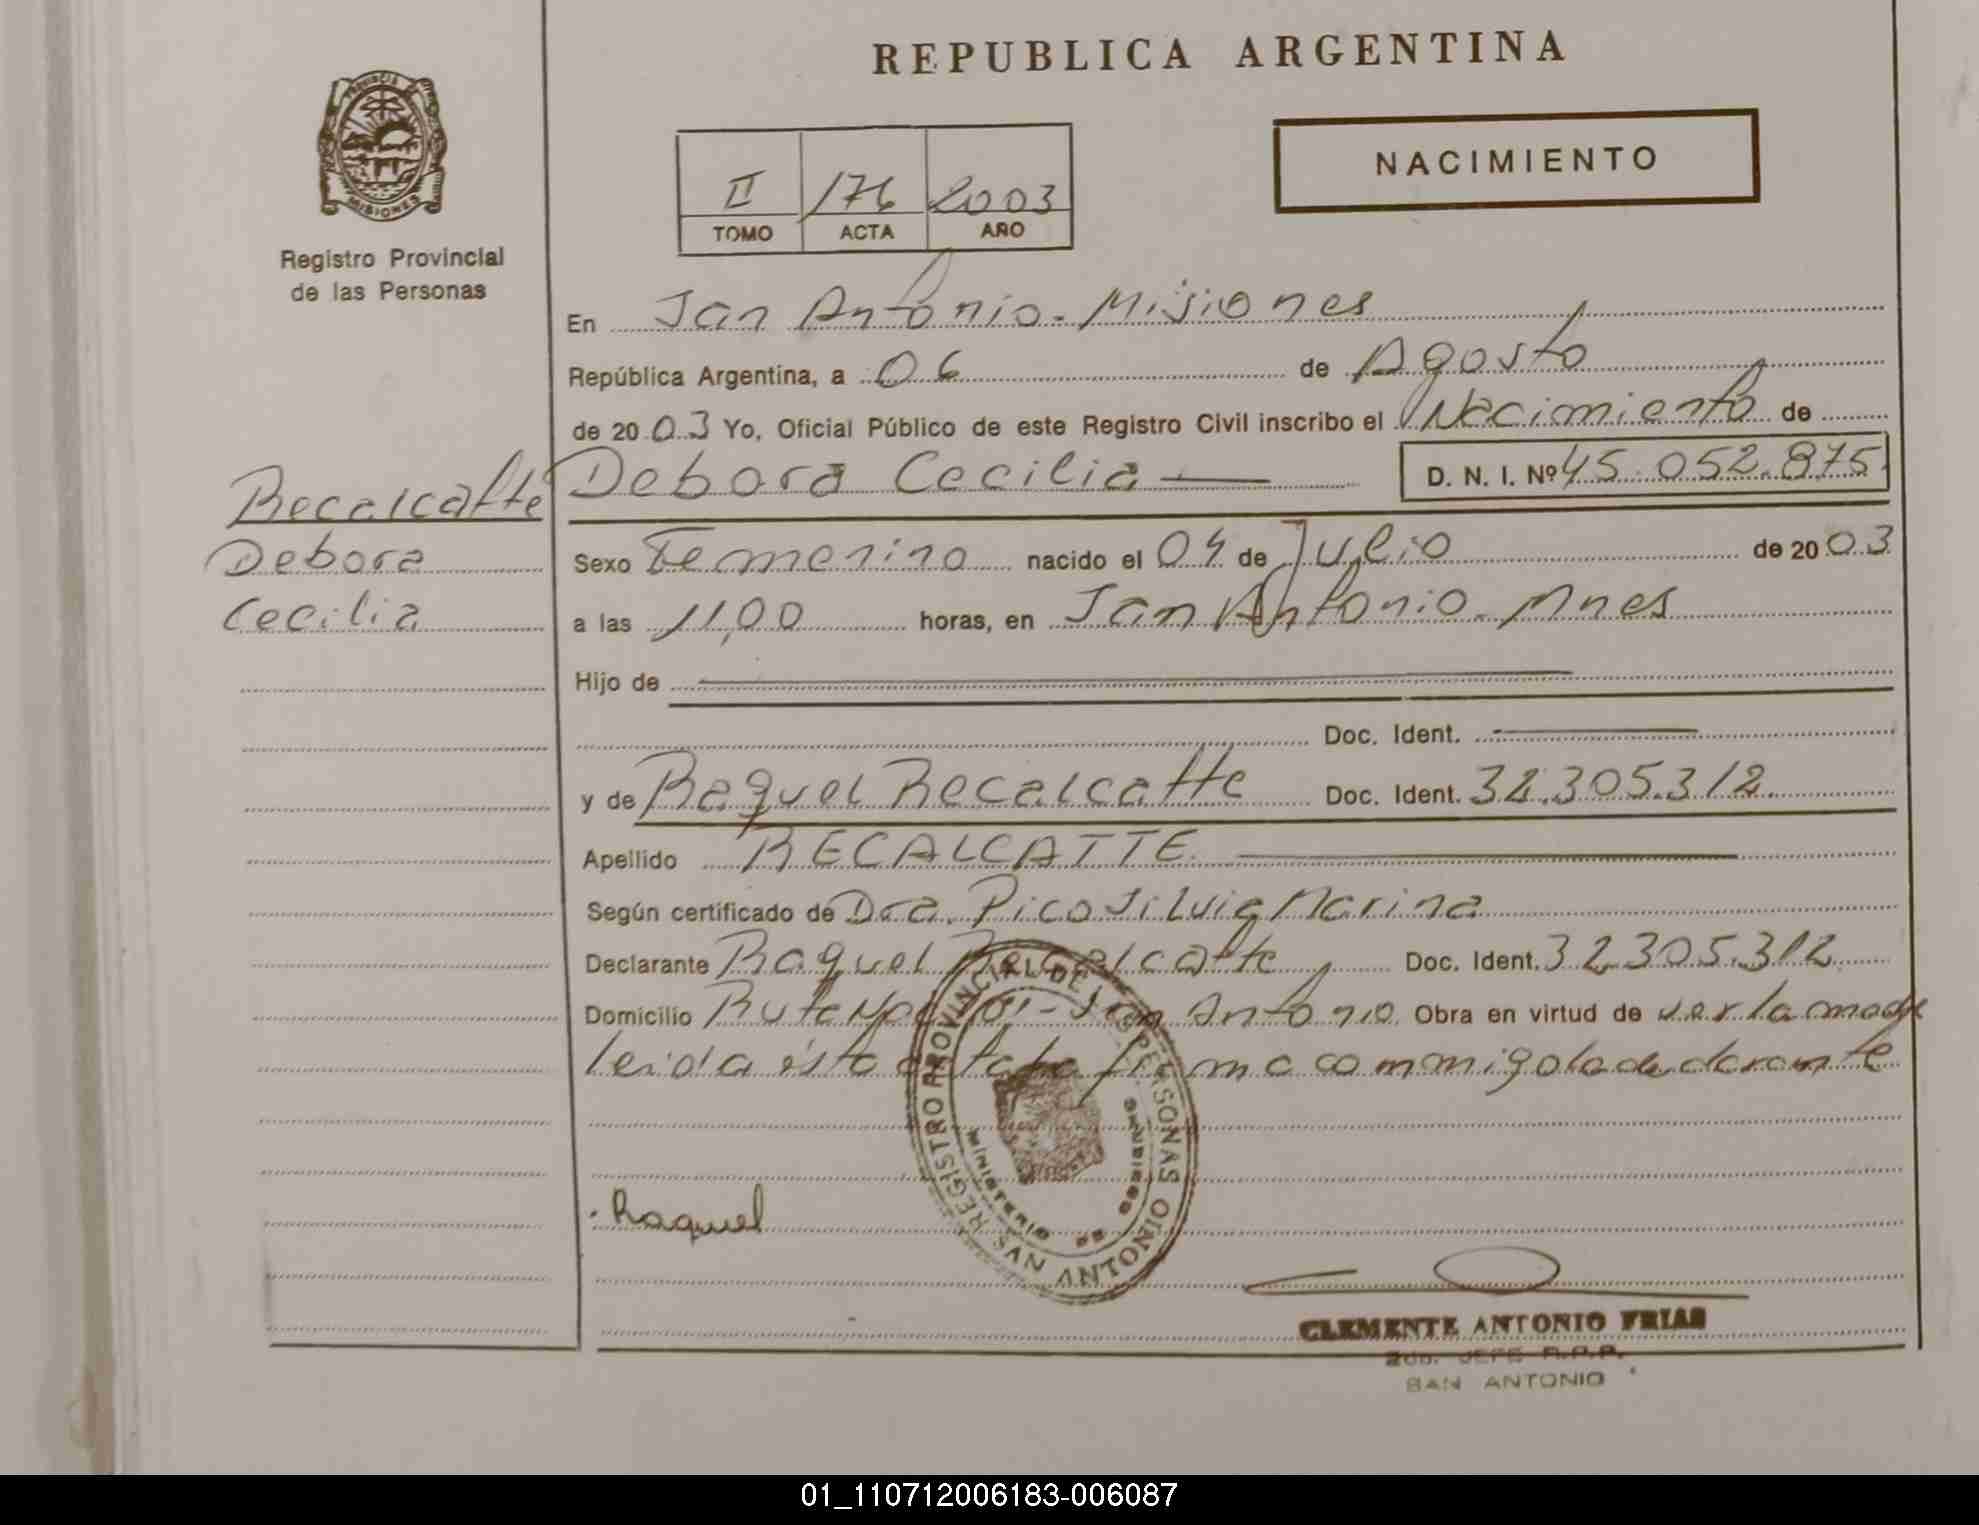 REPUBLICA ARGENTINA
PROVINCIA DE
MISIONES
Registro Provincial
de las Personas
II 176 2003
TOMO ACTA AÑO
NACIMIENTO
En San Antonio - Misiones
República Argentina, a 06 de Agosto
de 2003 Yo, Oficial Público de este Registro Civil inscribo el Nacimiento de
Debora Cecilia D. N. I. Nº 45.052.875
Recalcatte
Debora
Cecilia
Sexo Femenino nacido el 04 de Julio de 2003
a las 11,00 horas, en San Antonio - Mnes
Hijo de
Doc. Ident.
y de Raquel Recalcatte Doc. Ident. 32.305.312
Apellido RECALCATTE
Según certificado de Dra. Pico Silvia Marina
Declarante Raquel Recalcatte Doc. Ident. 32.305.312
Domicilio Ruta Npal 101 - San Antonio Obra en virtud de ser la madre
leida ésta acta la firma conmigo la declarante
REGISTRO PROVINCIAL DE LAS PERSONAS
SAN ANTONIO
MINISTERIO DE GOBIERNO
Raquel
CLEMENTE ANTONIO FRIAS
2do. JEFE R.P.P.
SAN ANTONIO
01_110712006183-006087